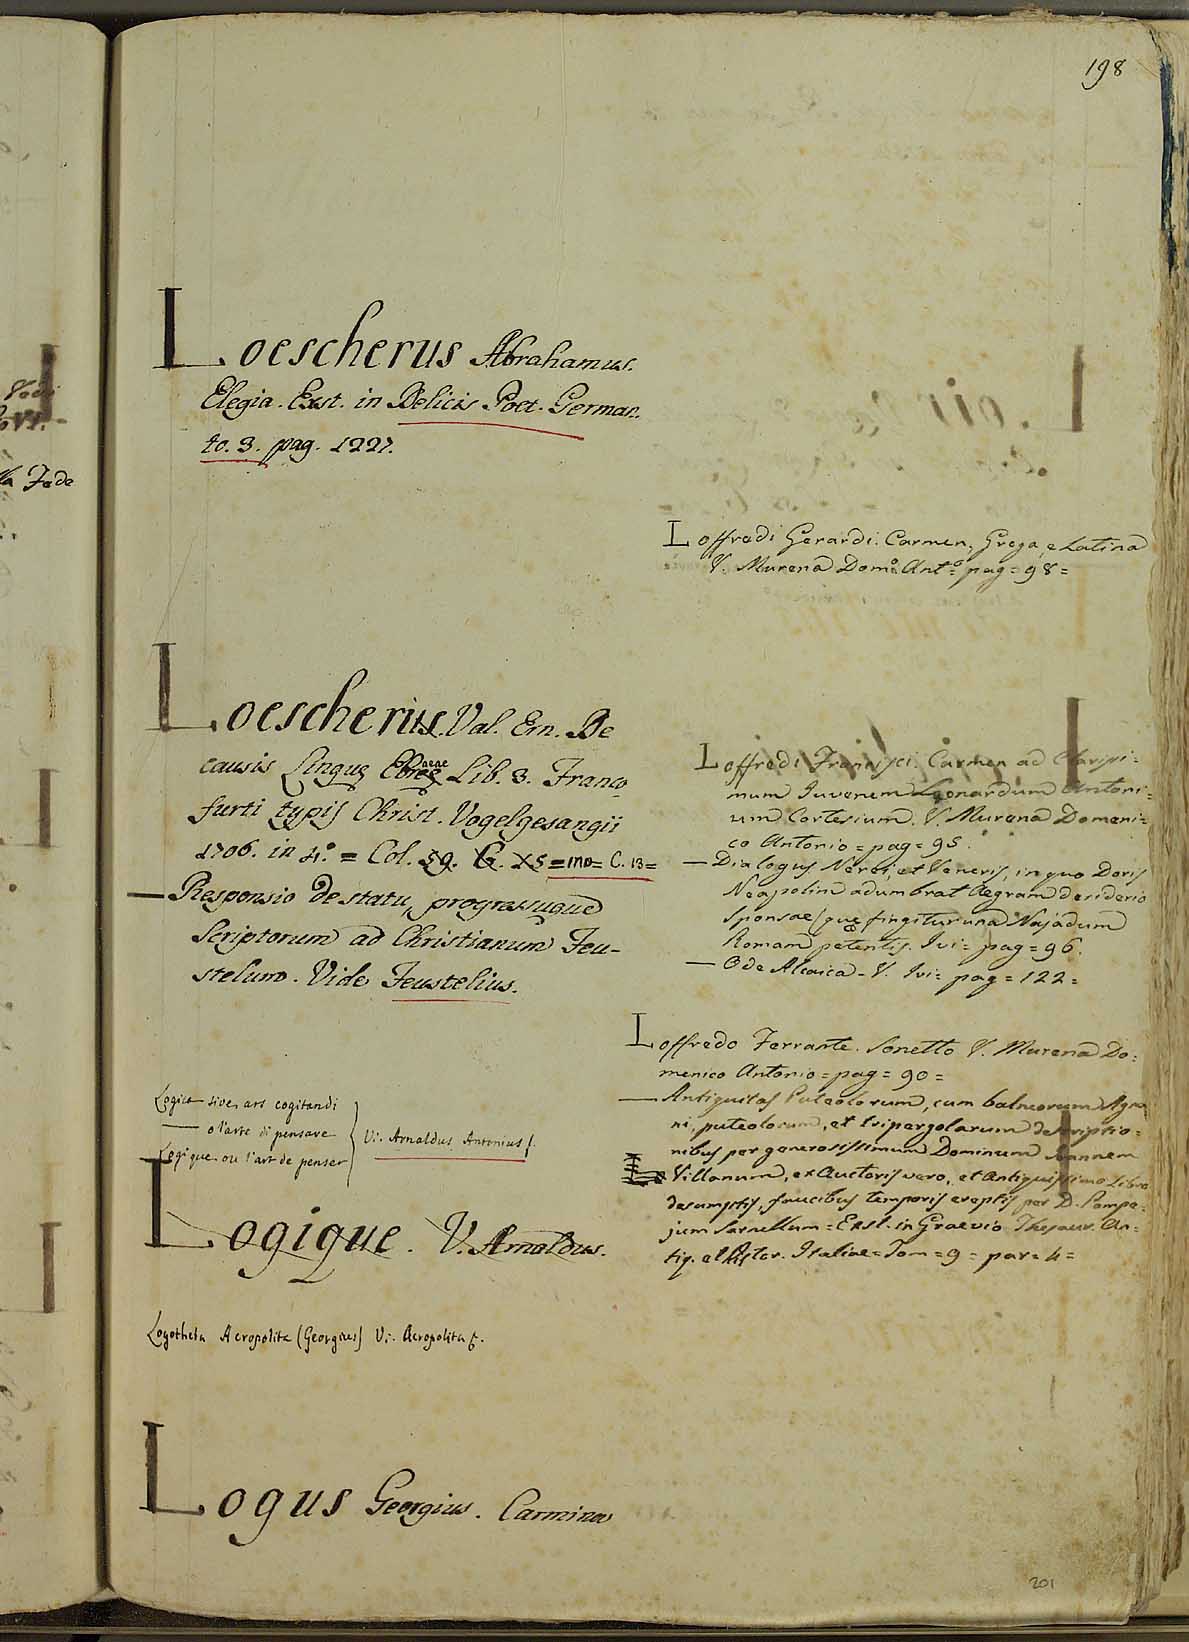 198
Loescherus Abrahamus.
Elegia. Exst. in Delicis Poet. German.
to. 3. pag. 1227.
Loescherus. Val. Ern. De
causis Linguę Ebreę aeae Lib. 3. Franco
furti typis Christ. Vogelgesangii
1706. in 4.° = Col. 59. G. X5 = mo = C. 13 =
— Responsio de statu, progressuque
Scriptorum ad Christianum Feu-
stelium. Vide Feustelius.
Logica sive ars cogitandi
— o l'arte di pensare
Logique ou l'art de penser
Vi. Arnaldus Antonius
Logique. V. Arnaldus.
Logotheta Acropolita (Georgius) Vi. Acropolita
Logus Georgius. Carmina
Loffredi Gerardi. Carmen, Grega, e Latina
V. Murena Dom.° Ant.° pag = 98 =
Loffredi Francisci. Carmen ad Clarissi=
mum Juvenem Leonardum Antoni=
um Cortesium. V. Murena Domeni=
co Antonio = pag = 95.
— Dialogus Nerei, et Veneris, in quo Doris
Neapolim adumbrat Aegram desiderio
Sponsae, que fingitur una Najadum
Romam petentis. Ivi = pag = 96.
— Ode Alcaica - V. Ivi = pag = 122 =
Loffredo Ferrante. Sonetto V. Murena Do=
menico Antonio = pag = 90 =
— Antiquitas Puteolorum, cum balneorum Agna
ni, puteolorum, et tripergolarum descriptio=
nibus per generosissimum Dominum Joannem
Villanum, ex Auctoris vero, et Antiquissimo Libro
desumptis, faucibus temporis ereptis per D. Pompe=
jum Sarnellum = Exst. in Graevio Thesaur. An=
tiq. et Histor. Italiae = Tom = 9 = par = 4 =
201